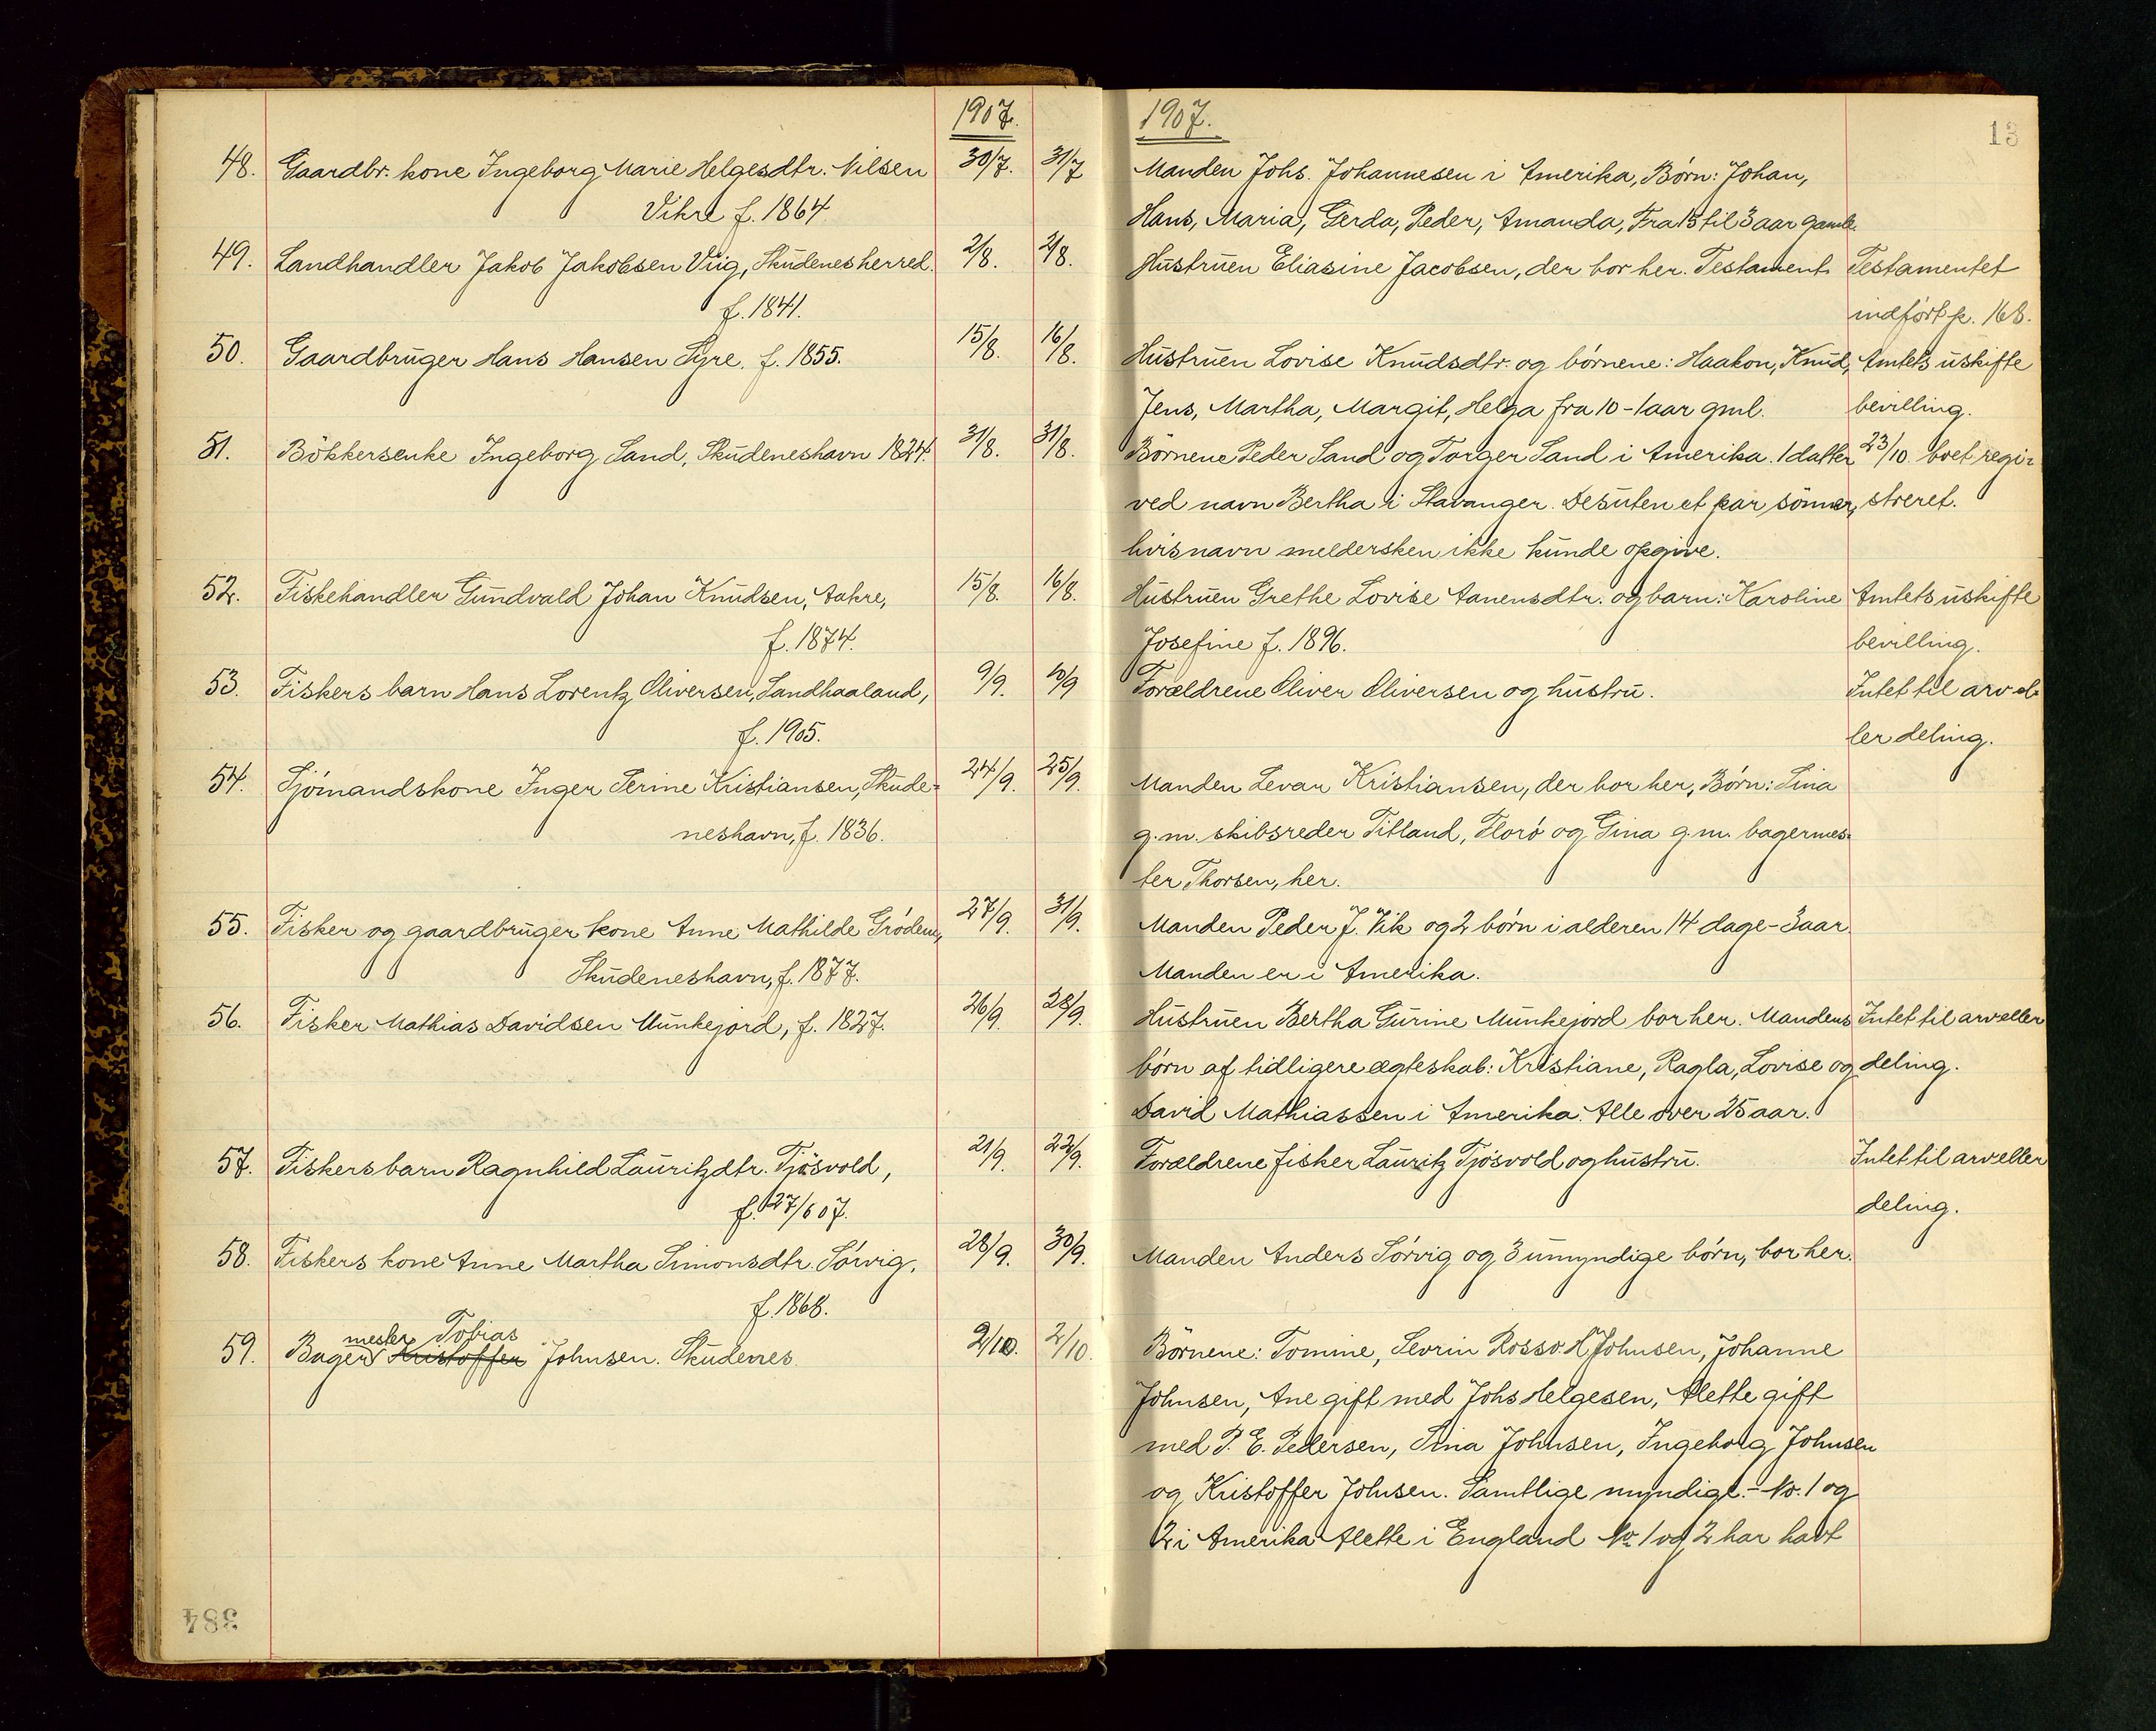 1907.
48. Gaardbr. kone Ingeborg Marie Helgesdtr. Nilsen 30/7. 31/7
Vikre f. 1864
49. Landhandler Jakob Jakobsen Viig, Skudenesherred. 2/8. 2/8.
f. 1841.
50. Gaardbruger Hans Hansen Syre. f. 1855. 15/8. 16/8.
51. Bökkerenke Ingeborg Sand, Skudeneshavn 1824. 31/8. 31/8.
52. Fiskehandler Gundvald Johan Knudsen, Aakre, 15/8. 16/8.
f. 1874.
53. Fiskers barn Hans Lorentz Oliversen, Sandhaaland, 9/9. 10/9
f. 1905.
54. Sjömandskone Inger Serine Kristiansen, Skude= 24/9. 25/9.
neshavn, f. 1836.
55. Fisker og gaardbruger kone Anne Mathilde Grödem, 27/9. 31/9.
Skudeneshavn, f. 1877.
56. Fisker Mathias Davidsen Munkejord, f. 1827. 26/9. 28/9.
57. Fiskers barn Ragnhild Lauritzdtr. Tjösvold, 21/9. 22/9.
f. 27/6 07.
58. Fiskers kone Anne Martha Simonsdtr. Sörvig. 28/9. 30/9.
f. 1868.
mester Tobias
59. Bager Kristoffer Johnsen. Skudenes. 2/10. 2/10.
384
1907.
13
Manden Johs. Johannesen i Amerika, Börn: Johan,
Hans, Maria, Gerda, Peder, Amanda, Fra 15 til 3 aar gamle.
Hustruen Eliasine Jacobsen, der bor her. Testament. Testamentet
indfört p. 168.
Hustruen Lovise Knudsdtr. og börnene: Haakon, Knud, Amtets uskifte
Jens, Martha, Margit, Helga fra 10-1 aar gml. bevilling.
Börnene Peder Sand og Torger Sand i Amerika. 1 datter 23/10. boet regi=
ved navn Bertha i Stavanger. Desuten et par sönner, streret.
hvis navn meldersken ikke kunde opgive.
Hustruen Grethe Lovise Aanensdtr. og barn: Karoline Amtets uskifte
Josefine f. 1896. bevilling.
Forældrene Oliver Oliversen og hustru. Intet til arv el-
ler deling.
Manden Levar Kristiansen, der bor her, Börn: Sina
g.m. skibsreder Titland, Florö og Gina g.m. bagermes=
ter Thorsen, her.
Manden Peder J. Vik og 2 börn i alderen 14 dage-3 aar.
Manden er i Amerika.
Hustruen Bertha Gurine Munkejord bor her. Mandens Intet til arv eller
börn af tidligere ægteskab: Kristiane, Ragla, Lovise og deling.
David Mathiassen i Amerika. Alle over 25 aar.
Forældrene fisker Lauritz Tjösvold og hustru. Intet til arv eller
deling.
Manden Anders Sörvig og 3 umyndige börn, bor her.
Börnene: Tomine, Sevrin Rosso. H Johnsen, Johanne
Johnsen, Ane gift med Johs Helgesen, Alette gift
med P. E. Pedersen, Sina Johnsen, Ingeborg Johnsen
og Kristoffer Johnsen. Samtlige myndige. - No. 1 og
2 i Amerika Alette i England No. 1 og 2 har havt